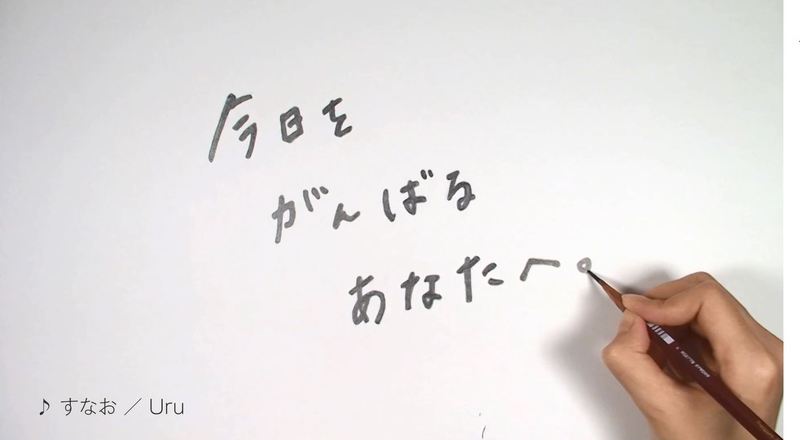 今日を
がんばる
あなたへ。
♪ すなお ／ Uru